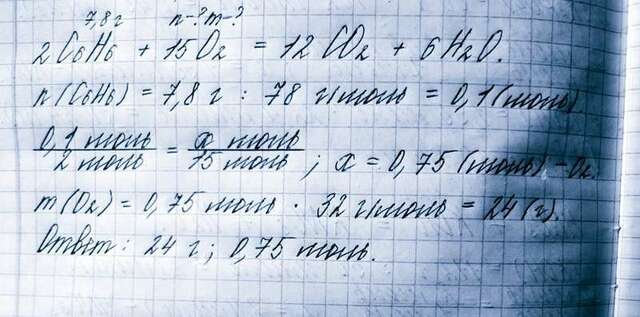 7,8 г n-? m-?
2C6H6 + 15O2 = 12CO2 + 6H2O.
n(C6H6) = 7,8 г : 78 г/моль = 0,1(моль)
0,1 моль / 2 моль = x моль / 15 моль ; x = 0,75(моль) - O2.
m(O2) = 0,75 моль · 32 г/моль = 24(г).
Ответ: 24 г; 0,75 моль.